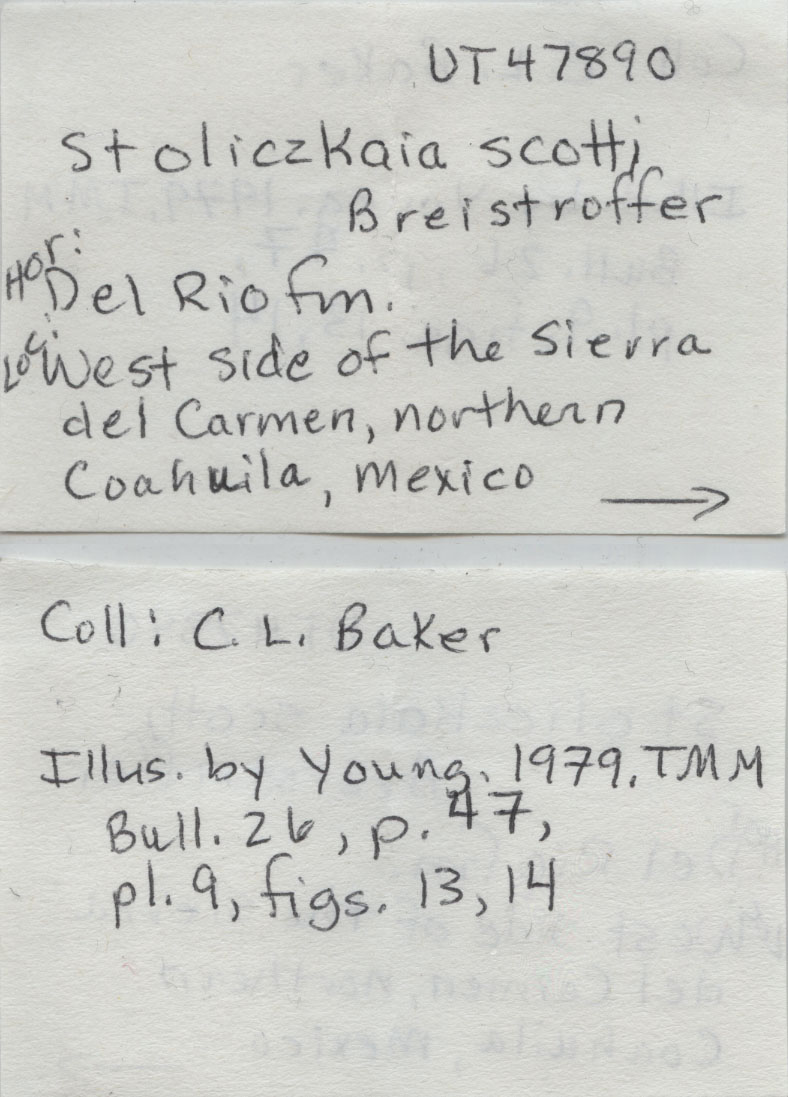 UT47890
Stoliczkaia scotti
Breistroffer
Hor:
Del Rio fm.
Loc:
West side of the Sierra
del Carmen, northern
Coahuila, Mexico →
Coll: C. L. Baker
Illus. by Young, 1979, TMM
Bull. 26, p. 47,
pl. 9, figs. 13, 14